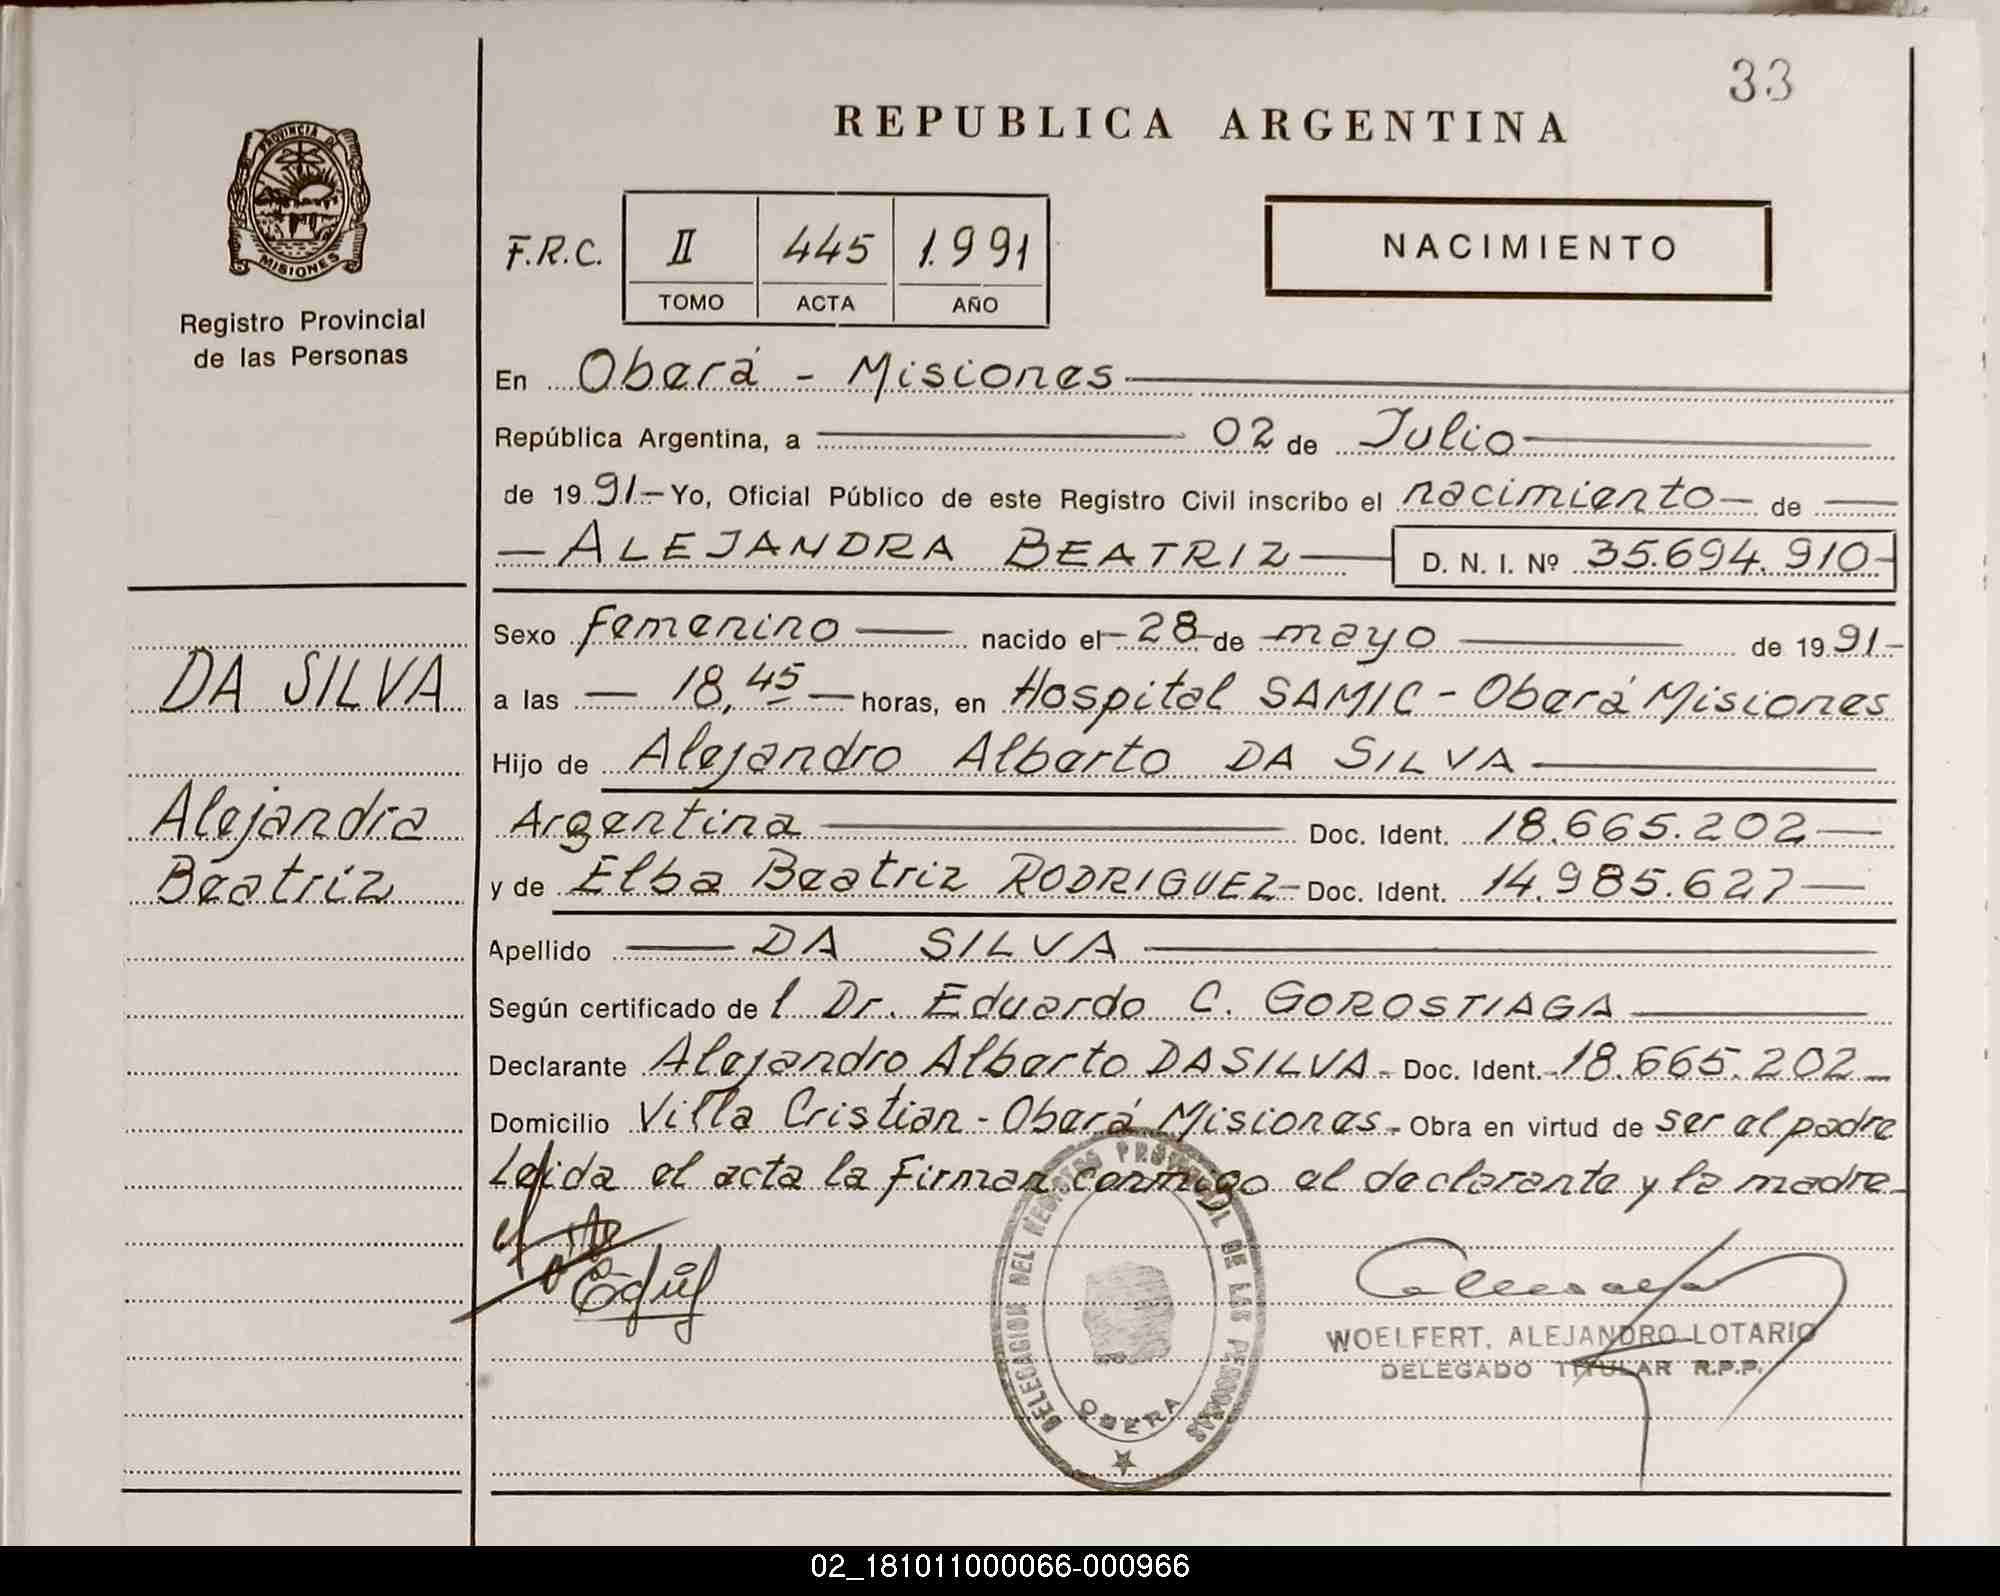 33
REPUBLICA ARGENTINA
PROVINCIA DE
MISIONES
Registro Provincial
de las Personas
F.R.C. II 445 1.991
TOMO ACTA AÑO
NACIMIENTO
En Oberá - Misiones
República Argentina, a 02 de Julio
de 1991- Yo, Oficial Público de este Registro Civil inscribo el nacimiento de
ALEJANDRA BEATRIZ D. N. I. Nº 35.694.910-
Sexo femenino nacido el 28 de mayo de 1991-
a las 18,45 horas, en Hospital SAMIC - Oberá Misiones
Hijo de Alejandro Alberto DA SILVA
Argentina Doc. Ident. 18.665.202
y de Elba Beatriz RODRIGUEZ- Doc. Ident. 14.985.627
Apellido DA SILVA
Según certificado de l Dr. Eduardo C. GOROSTIAGA
Declarante Alejandro Alberto DA SILVA- Doc. Ident. 18.665.202
Domicilio Villa Cristian - Oberá Misiones- Obra en virtud de ser el padre
Leida el acta la Firman conmigo el declarante y la madre
DA SILVA
Alejandra
Beatriz
DELEGACION DEL REGISTRO PROVINCIAL DE LAS PERSONAS
OBERA
WOELFERT, ALEJANDRO LOTARIO
DELEGADO TITULAR R.P.P.
02_181011000066-000966